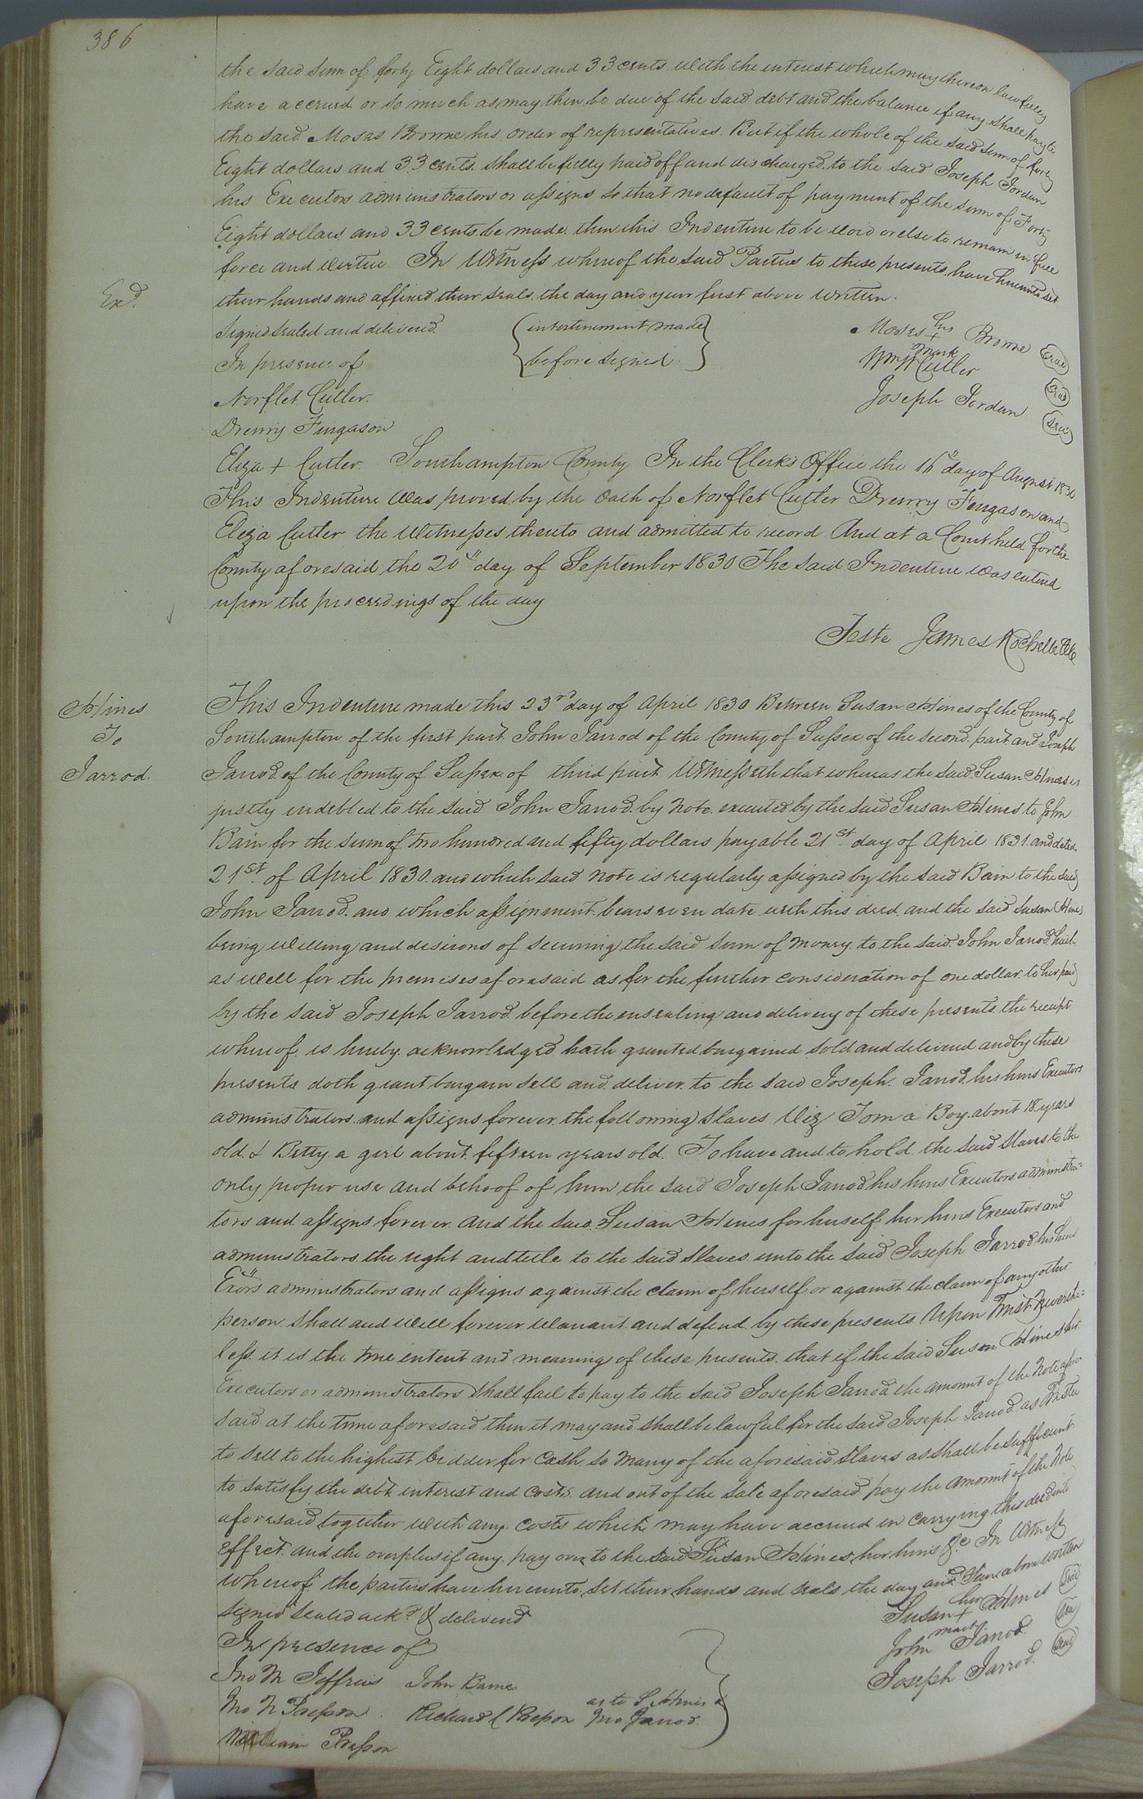 386
the said sum of forty Eight dollars and 33 cents with the interest which may thereon lawfully
have accrued or so much as may then be due of the said debt and the balance if any shall pay to
the said Moses Browne his order of representatives. But if the whole of the said sum of forty
Eight dollars and 33 cents shall be fully paid off and discharged to the said Joseph Jordan
his Executors administrators or assigns so that no default of payment of the sum of Forty
Eight dollars and 33 cents be made then this Indenture to be void or else to remain in full
force and virtue. In Witness whereof the said Parties to these presents have hereunto set
Exd.
their hands and affixed their seals the day and year first above written.
Signed sealed and delivered (interlinement made) Moses his + mark Browne Seal
In presence of before signed Wm Cutler Seal
Norflet Cutler. Joseph Jordan Seal
Drewry Furgason
Eliza + Cutler. Southampton County In the Clerk's Office the 16th day of August 1830
This Indenture was proved by the oath of Norflet Cutler Drewry Furgason and
Eliza Cutler the Witnesses thereto and admitted to record And at a Court held for the
County aforesaid the 20th day of September 1830 The said Indenture was entered
upon the proceedings of the day
Teste James Rochelle Clk
Hines
To
Jarrod.
This Indenture made this 23rd day of April 1830 Between Susan Hines of the County of
Southampton of the first part John Jarrod of the County of Sussex of the second part and Joseph
Jarrod of the County of Sussex of third part Witnesseth that whereas the said Susan Hines is
justly indebted to the said John Jarrod by note executed by the said Susan Hines to John
Bain for the sum of two hundred and fifty dollars payable 21st day of April 1831 and dated
21st of April 1830 and which said note is regularly assigned by the said Bain to the said
John Jarrod and which assignment bears even date with this deed and the said Susan Hines
being willing and desirous of securing the said sum of money to the said John Jarrod hath
as well for the premises aforesaid as for the further consideration of one dollar to her paid
by the said Joseph Jarrod before the ensealing and delivery of these presents the receipt
whereof is hereby acknowledged hath granted bargained sold and delivered and by these
presents doth grant bargain sell and deliver to the said Joseph Jarrod his heirs Executors
administrators and assigns forever the following slaves Viz Tom a Boy about 18 years
old & Betty a girl about fifteen years old. To have and to hold the said slaves to the
only proper use and behoof of him the said Joseph Jarrod his heirs Executors administra-
tors and assigns forever and the said Susan Hines for herself her heirs Executors and
administrators the right and title to the said slaves unto the said Joseph Jarrod his heirs
Exors administrators and assigns against the claim of herself or against the claim of any other
person shall and will forever Warrant and defend by these presents Upon Trust Neverthe-
less it is the true entent and meaning of these presents that if the said Susan Hines her
Executors or administrators shall fail to pay to the said Joseph Jarrod the amount of the Note afore-
said at the time aforesaid then it may and shall be lawful for the said Joseph Jarrod as Trustee
to sell to the highest bidder for cash so many of the aforesaid slaves as shall be sufficient
to satisfy the debt interest and costs and out of the sale aforesaid pay the amount of the Note
aforesaid together with any costs which may have accrued in carrying this deed into
effect and the overplus if any pay over to the said Susan Hines her heirs &c In Witness
whereof the parties have hereunto set their hands and seals the day and Year above written
Signed sealed ackd & delivered Susan her + mark Hines Seal
In presence of John Jarrod Seal
Jno M Jeffries John Bame Joseph Jarrod. Seal
Jno N Presson. Richard Presson as to S Hines & Jno Jarrod.
William Presson